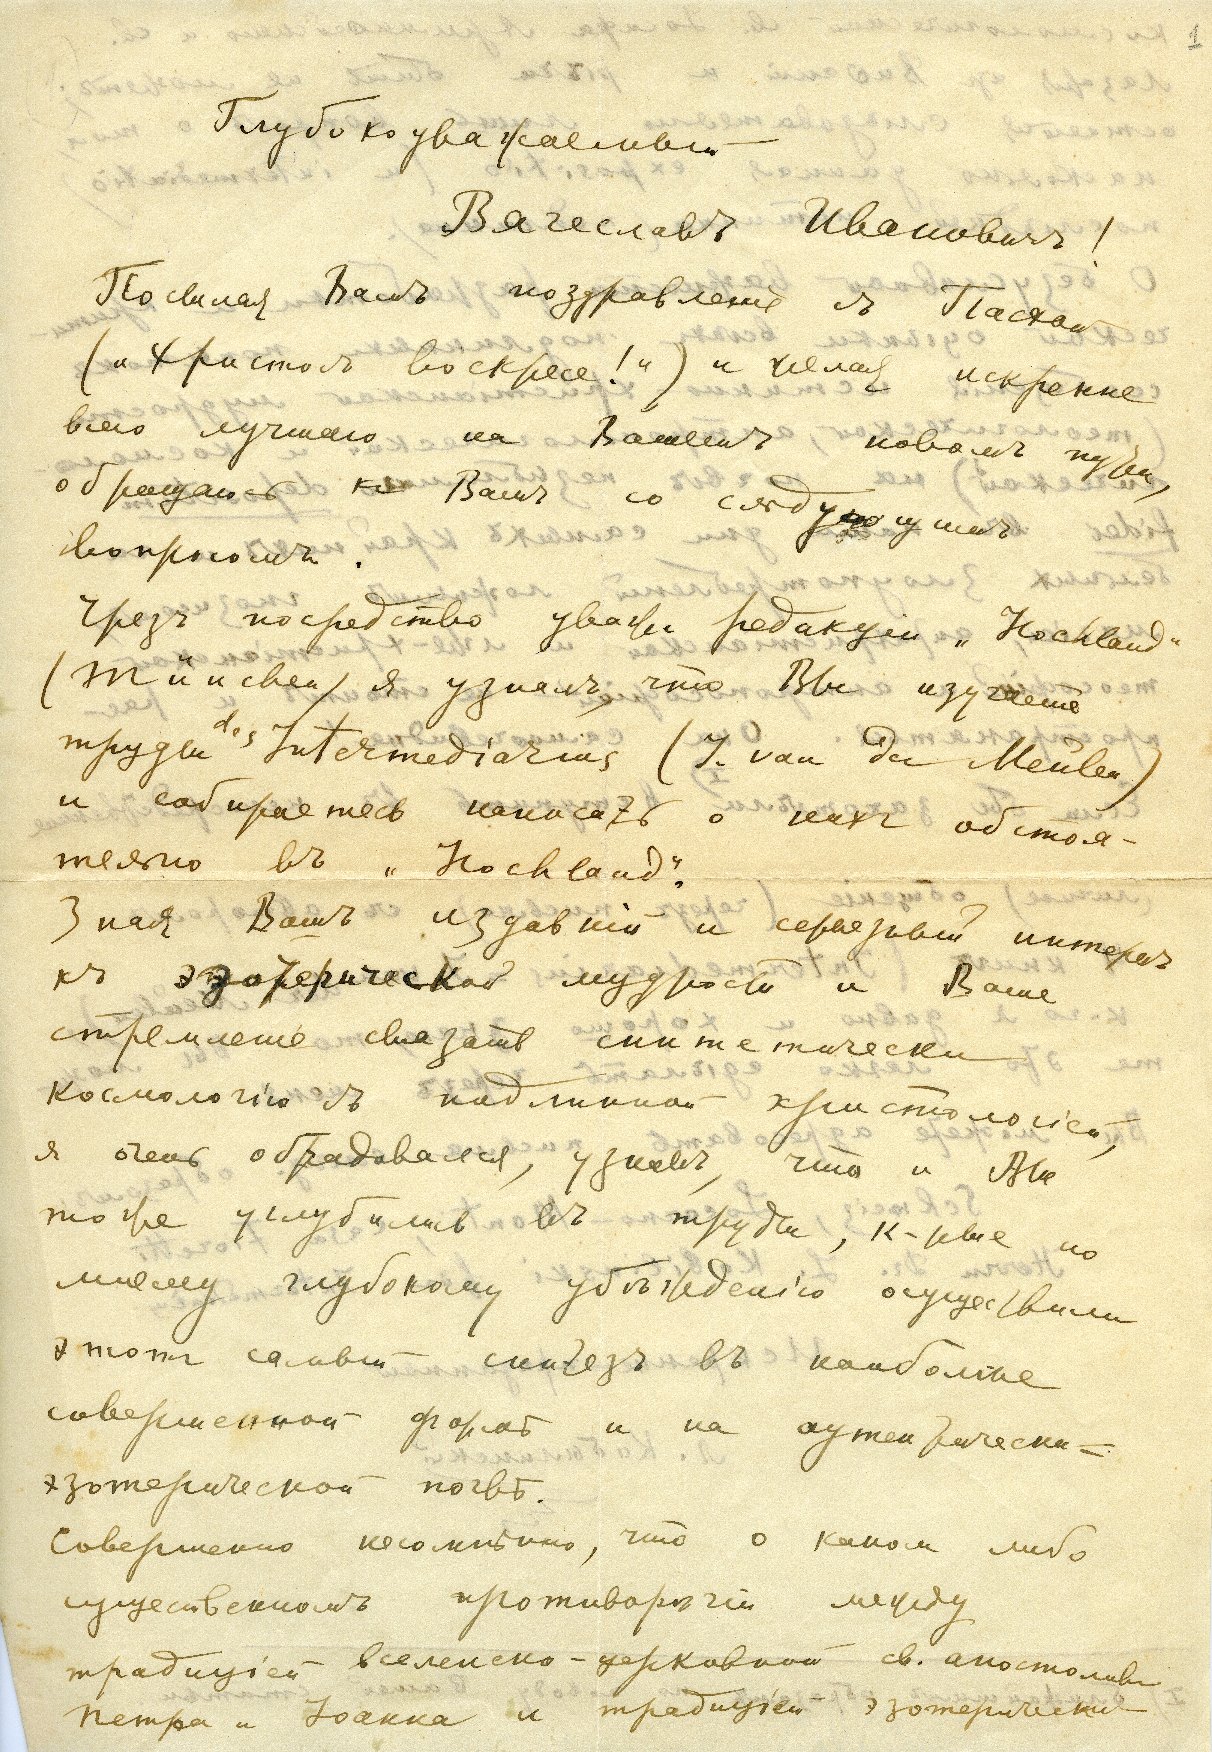 1
Глубокоуважаемый
Вячеславъ Ивановичъ!
Посылая Вамъ поздравленіе съ Пасхой
("Христосъ воскресе!") и желая искренне
всего лучшаго на Вашемъ новомъ пути,
обращаюсь къ Вамъ со слѣдующимъ
вопросомъ.
Чрезъ посредство уваж. редакціи „Hochland"
(München) я узналъ, что Вы изучаете
труды des Intermediarius (J. van der Meulen)
и собираетесь написать о нихъ обстоя-
тельно въ „Hochland".
Зная Вашъ издавній и серьезный интересъ
къ эзотерической мудрости и Ваше
стремленіе связать синтетически
космологію съ подлинной христологіей,
я очень обрадовался, узнавъ, что и Вы
тоже углубились въ труды, к-рые по
моему глубокому убѣжденію осуществили
этотъ самый синтезъ въ наиболѣе
совершенной формѣ и на аутентически-
эзотерической почвѣ.
Совершенно несомнѣнно, что о каком либо
существенномъ противорѣчіи между
традиціей вселенско-церковной св. апостоловъ
Петра и Іоанна и традиціей эзотерически